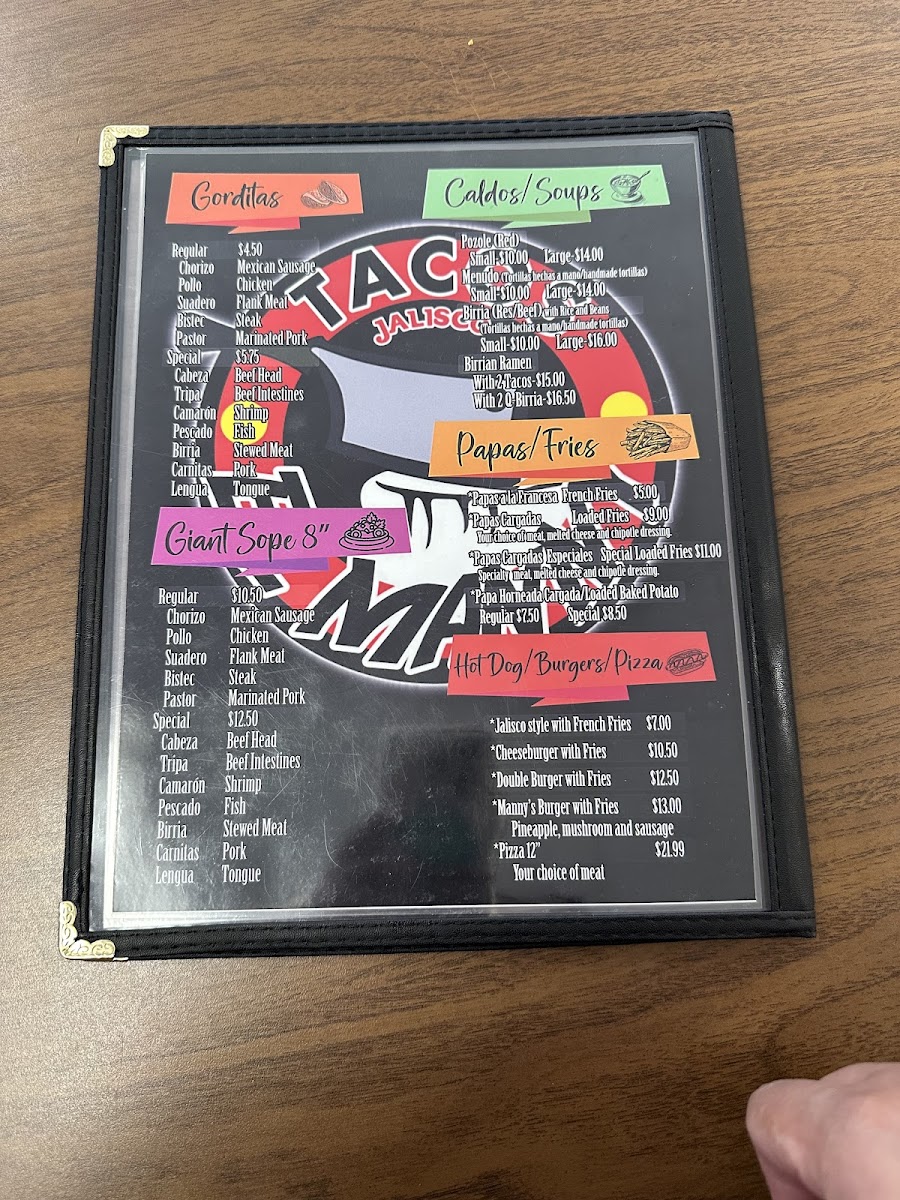 Gorditas
Regular $4.50
Chorizo Mexican Sausage
Pollo Chicken
Suadero Flank Meat
Bistec Steak
Pastor Marinated Pork
Special $5.75
Cabeza Beef Head
Tripa Beef Intestines
Camarón Shrimp
Pescado Fish
Birria Stewed Meat
Carnitas Pork
Lengua Tongue
Giant Sope 8"
Regular $10.50
Chorizo Mexican Sausage
Pollo Chicken
Suadero Flank Meat
Bistec Steak
Pastor Marinated Pork
Special $12.50
Cabeza Beef Head
Tripa Beef Intestines
Camarón Shrimp
Pescado Fish
Birria Stewed Meat
Carnitas Pork
Lengua Tongue
Caldos/Soups
Pozole (Red)
Small-$10.00 Large-$14.00
Menudo (Tortillas hechas a mano/handmade tortillas)
Small-$10.00 Large-$14.00
Birria (Res/Beef) with Rice and Beans
(Tortillas hechas a mano/handmade tortillas)
Small-$10.00 Large-$16.00
Birrian Ramen
With 2 Tacos-$15.00
With 2 Q-Birria-$16.50
Papas/Fries
*Papas a la Francesa French Fries $5.00
*Papas Cargadas Loaded Fries $9.00
Your choice of meat, melted cheese and chipotle dressing.
*Papas Cargadas Especiales Special Loaded Fries $11.00
Specialty meat, melted cheese and chipotle dressing.
*Papa Horneada Cargada/Loaded Baked Potato
Regular $7.50 Special $8.50
Hot Dog/Burgers/Pizza
*Jalisco style with French Fries $7.00
*Cheeseburger with Fries $10.50
*Double Burger with Fries $12.50
*Manny's Burger with Fries $13.00
Pineapple, mushroom and sausage
*Pizza 12" $21.99
Your choice of meat
JALISCO